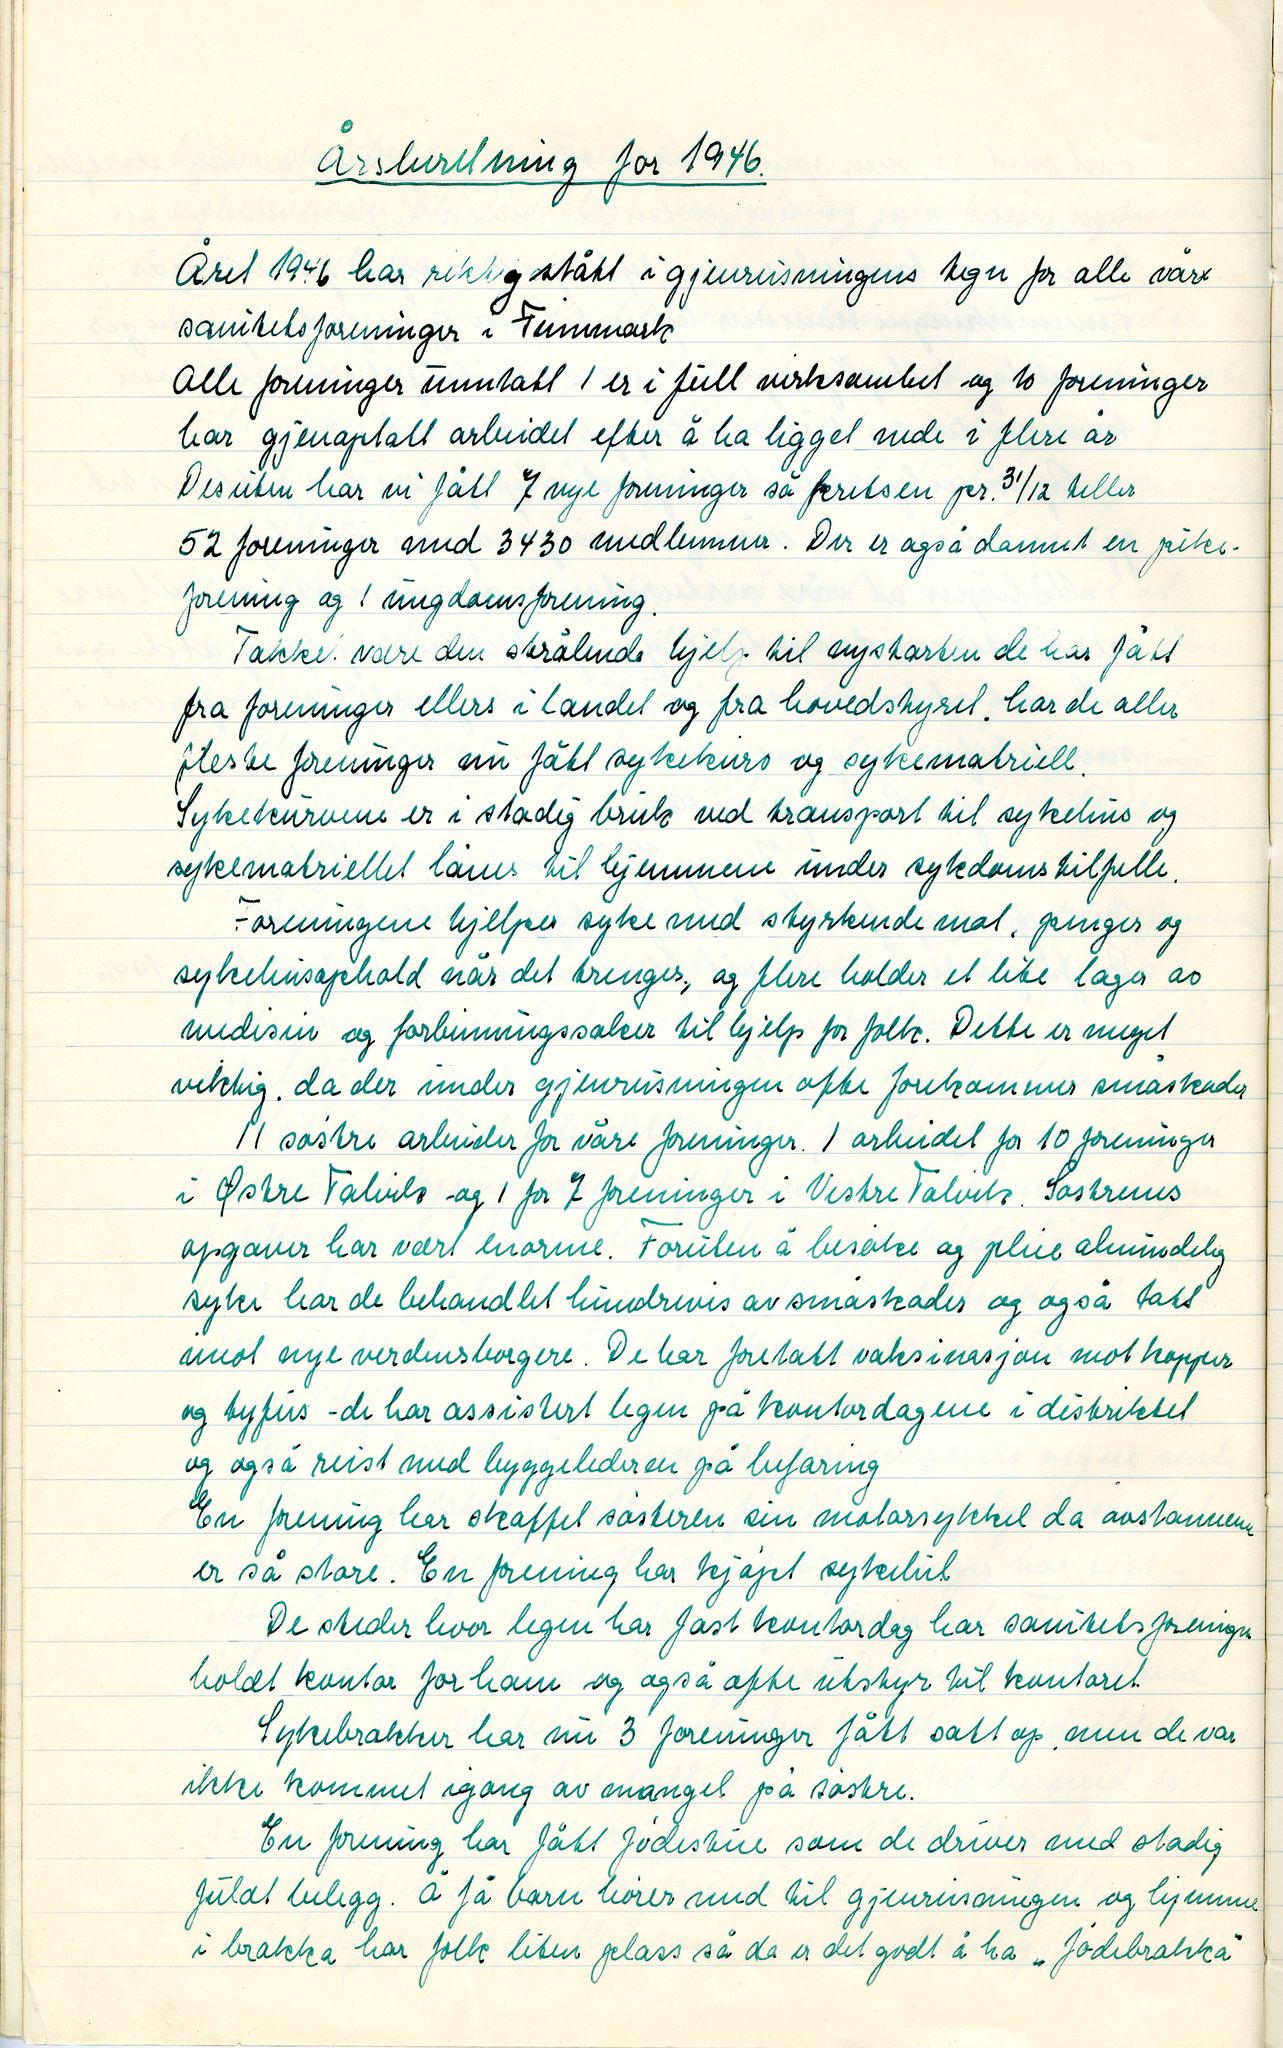 Årsberetning for 1946.
Året 1946 har riktig stått i gjenreisningens tegn for alle våre
sanitetsforeninger i Finnmark
Alle foreninger unntatt 1 er i full virksomhet og to foreninger
har gjenoptatt arbeidet efter å ha ligget nede i flere år
Desuten har vi fått 7 nye foreninger så kretsen pr. 31/12 teller
52 foreninger med 3430 medlemmer. Der er også dannet en pike-
forening og 1 ungdomsforening.
Takke være den strålende hjelp til nystarten de har fått
fra foreninger ellers i landet og fra hovedstyret, har de aller
fleste foreninger nu fått sykekurv og sykematriell.
Sykekurvene er i stadig bruk ved transport til sykehus og
sykematriellet lånes til hjemmene under sykdomstilfelle.
Foreningene hjelper syke med styrkende mat, penger og
sykehusophold når det trenges, og flere holder et lite lager av
medisin og forbinningssaker til hjelp for folk. Dette er meget
viktig, da der under gjenreisningen ofte forekommer småskader
11 søstre arbeider for våre foreninger. 1 arbeidet for 10 foreninger
i Østre Talvik og 1 for 7 foreninger i Vestre Talvik. Søstrenes
opgaver har vært enorme. Foruten å besøke og pleie almindelig
syke har de behandlet hundrevis av småskader og også tatt
imot nye verdensborgere. De har foretatt vaksinasjon mot kopper
og tyfus - de har assistert legen på kontordagene i distriktet
og også reist med byggelederen på befaring
En forening har skaffet søsteren sin motorsykkel da avstannene
er så store. En forening har kjøpt sykebil
De steder hvor legen har fast kontordag har sanitetsforeningen
holdt kontor for ham og også ofte utstyr til kontoret.
Sykebrakker har nu 3 foreninger fått satt op, men de var
ikke kommet igang av mangel på søstre.
En forening har fått fødestue som de driver med stadig
fuldt belegg. Å få barn hører med til gjenreisningen og hjemme
i brakka har folk liten plass så da er det godt å ha „fødebrakka"